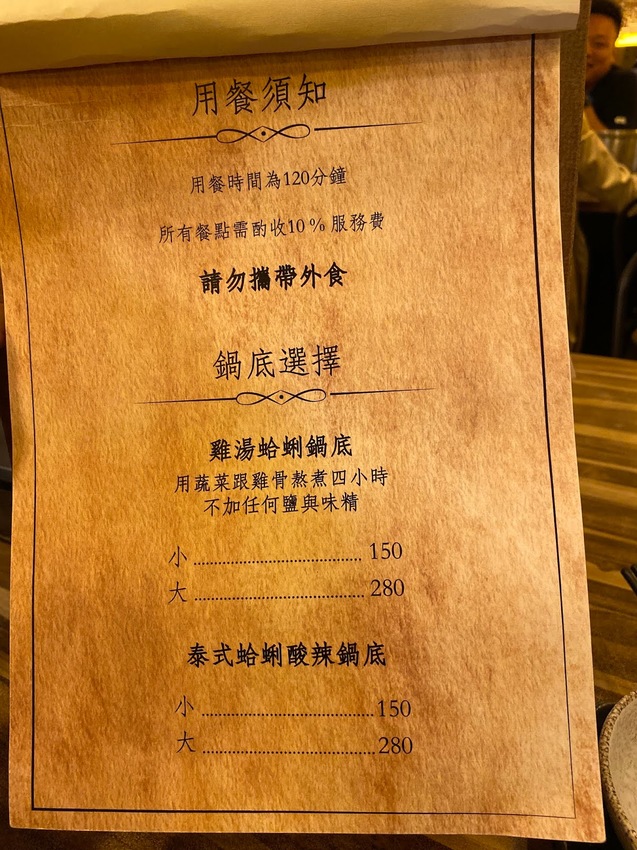 用餐須知
用餐時間為120分鐘
所有餐點需酌收10 % 服務費
請勿攜帶外食
鍋底選擇
雞湯蛤蜊鍋底
用蔬菜跟雞骨熬煮四小時
不加任何鹽與味精
小 ........................................ 150
大 ........................................ 280
泰式蛤蜊酸辣鍋底
小 ........................................ 150
大 ........................................ 280